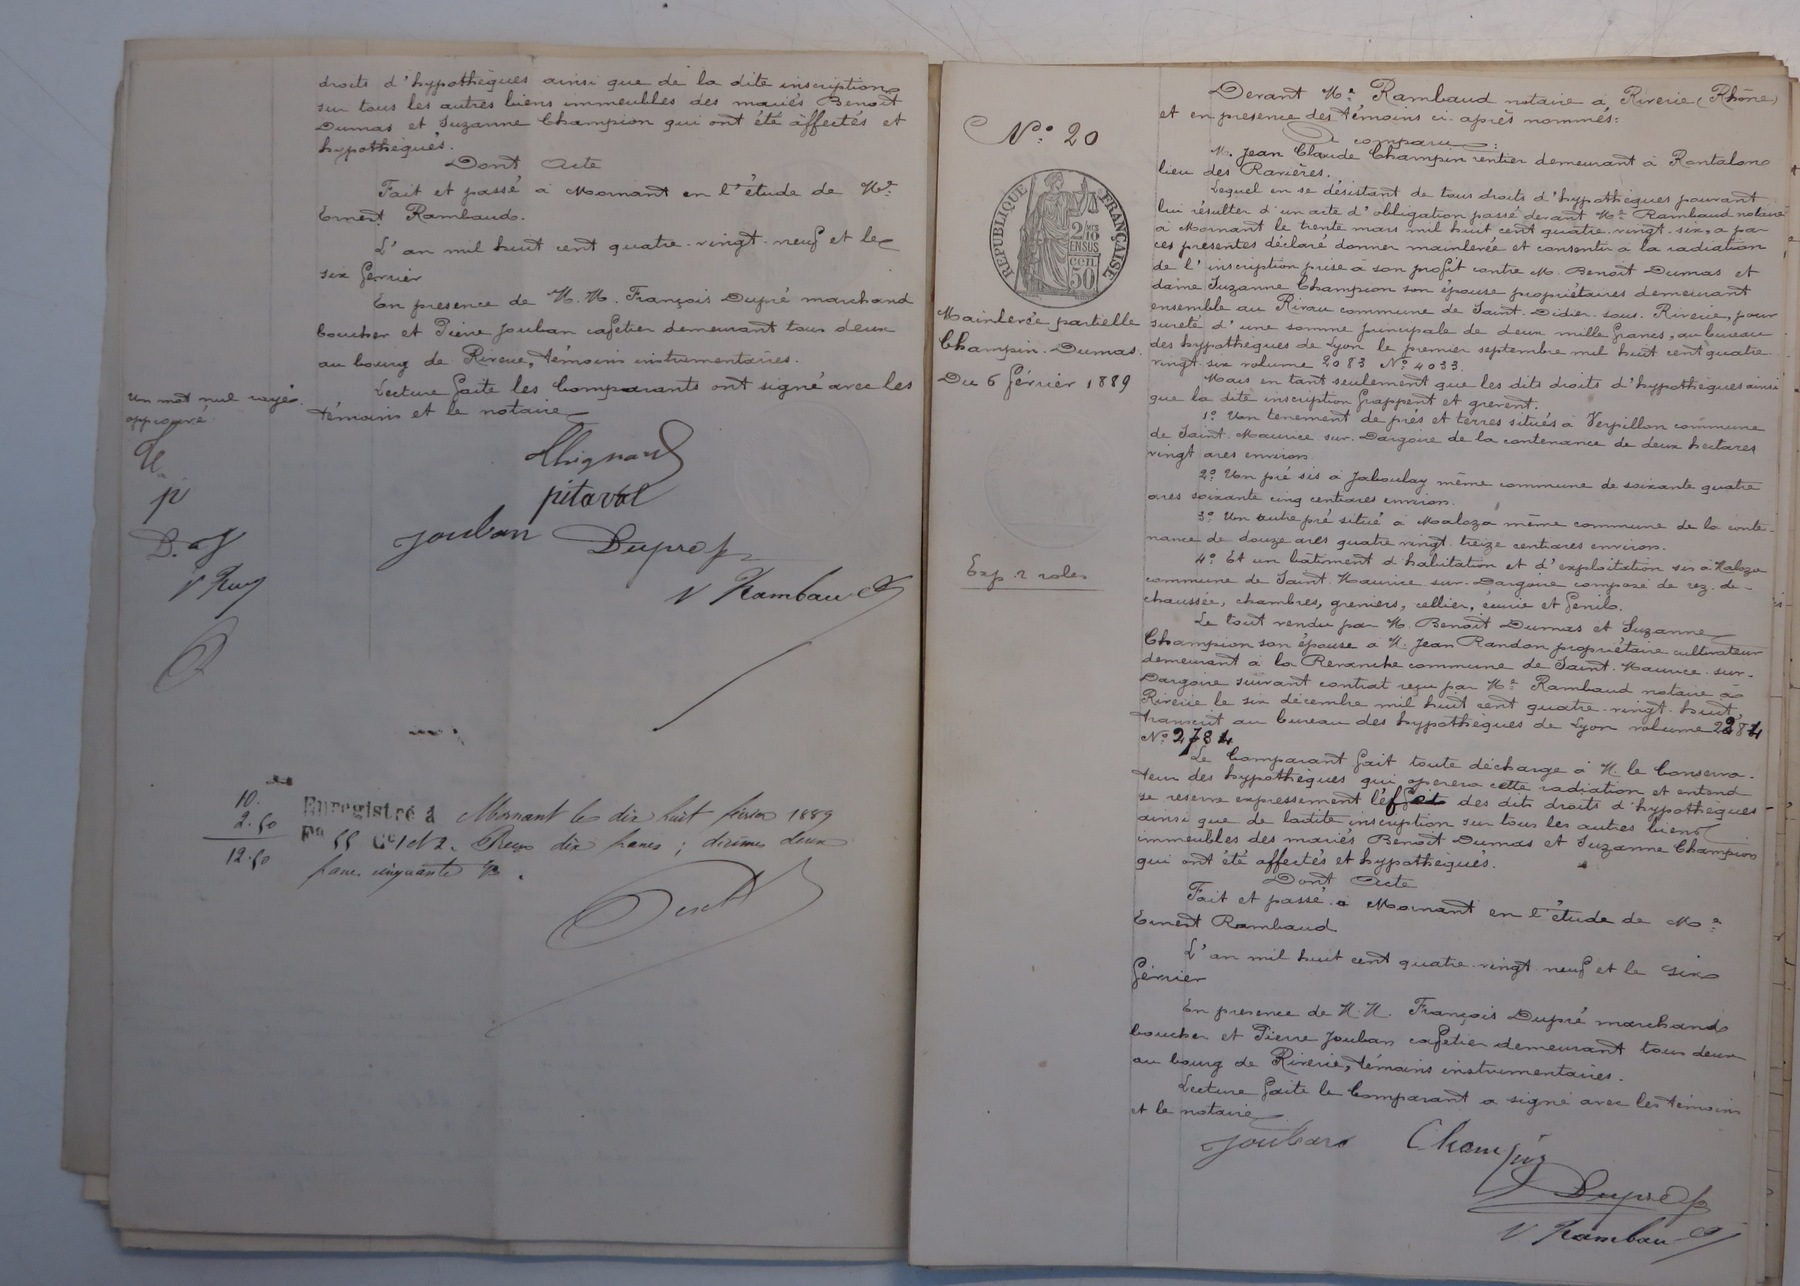 droits d'hypothèques ainsi que de la dite inscription
sur tous les autres biens immeubles des mariés Benoit
Dumas et Suzanne Champion qui ont été affectés et
hypothéqués.
Dont Acte
Fait et passé à Mornant en l'étude de Me
Ernest Rambaud.
L'an mil huit cent quatre-vingt-neuf et le
six février
En presence de M.M. François Dupré marchand
boucher et Pierre Jouban cafetier demeurant tous deux
au bourg de Riverie, témoins instrumentaires.
Lecture faite les Comparants ont signé avec les
témoins et le notaire
Un mot nul rayé
approuvé
pitaval
Jouban Dupré f
V Rambaud
10.
2.50
12.50
Enregistré à Mornant le dix huit février 1889
Fo 55 Ce 1 et 2. Reçu dix francs ; décimes deux
francs cinquante
Devant Me Rambaud notaire à Riverie (Rhône)
et en presence des témoins ci-après nommés:
A comparu:
M. Jean Claude Champin rentier demeurant à Rontalon
lieu des Ravières.
Lequel en se désistant de tous droits d'hypothèques pouvant
lui résulter d'un acte d'obligation passé devant Me Rambaud notaire
à Mornant le trente mars mil huit cent quatre-vingt-six, a par
ces présentes déclaré donner mainlevée et consentir à la radiation
de l'inscription prise à son profit contre M. Benoit Dumas et
dame Suzanne Champion son épouse propriétaires demeurant
ensemble au Rivau commune de Saint-Didier-sous-Riverie, pour
sureté d'une somme principale de deux mille francs, au bureau
des hypothèques de Lyon le premier septembre mil huit cent quatre-
vingt-six volume 2083 No 4033.
Mais en tant seulement que les dits droits d'hypothèques ainsi
que la dite inscription frappent et grevent.
1o Un tenement de prés et terres situés à Verpillon commune
de Saint-Maurice-sur-Dargoire de la contenance de deux hectares
vingt ares environ.
2o Un pré sis à Jaboulay même commune de soixante quatre
ares soixante cinq centiares environ.
3o Un autre pré situé à Maloza même commune de la conte-
nance de douze ares quatre-vingt-treize centiares environ.
4o Et un bâtiment d'habitation et d'exploitation sis à Maloza
commune de Saint-Maurice-sur-Dargoire composé de rez-de-
chaussée, chambres, greniers, cellier, écurie et fenil.
Le tout vendu par M. Benoit Dumas et Suzanne
Champion son épouse à M. Jean Randon propriétaire cultivateur
demeurant à la Revanche commune de Saint-Maurice-sur-
Dargoire suivant contrat reçu par Me Rambaud notaire à
Riverie le six décembre mil huit cent quatre-vingt-huit,
transcrit au bureau des hypothèques de Lyon volume
No
Le Comparant fait toute décharge à M. le Conserva-
teur des hypothèques qui operera cette radiation et entend
se reserve expressement l'effet des dits droits d'hypothèques
ainsi que de ladite inscription sur tous les autres biens
immeubles des mariés Benoit Dumas et Suzanne Champion
qui ont été affectés et hypothéqués.
Dont Acte
Fait et passé à Mornant en l'étude de Me
Ernest Rambaud
L'an mil huit cent quatre-vingt-neuf et le six
février
En presence de M.M. François Dupré marchand
boucher et Pierre Jouban cafetier demeurant tous deux
au bourg de Riverie, témoins instrumentaires.
Lecture faite le Comparant a signé avec les témoins
et le notaire
Jouban Champin
Dupré f
V Rambaud
No 20
RÉPUBLIQUE FRANÇAISE
2 MES 10
EN SUS
cen.
50
Mainlevée partielle
Champin-Dumas.
Du 6 février 1889
Exp. 2 roles